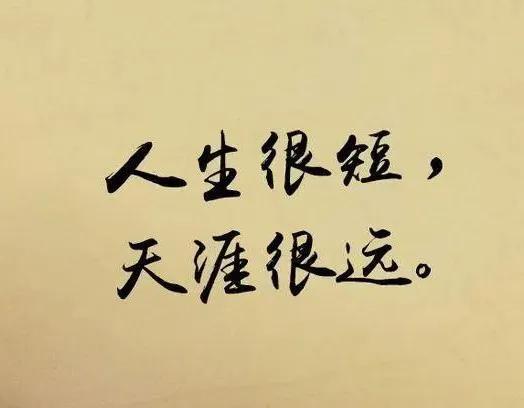 人生很短，
天涯很远。